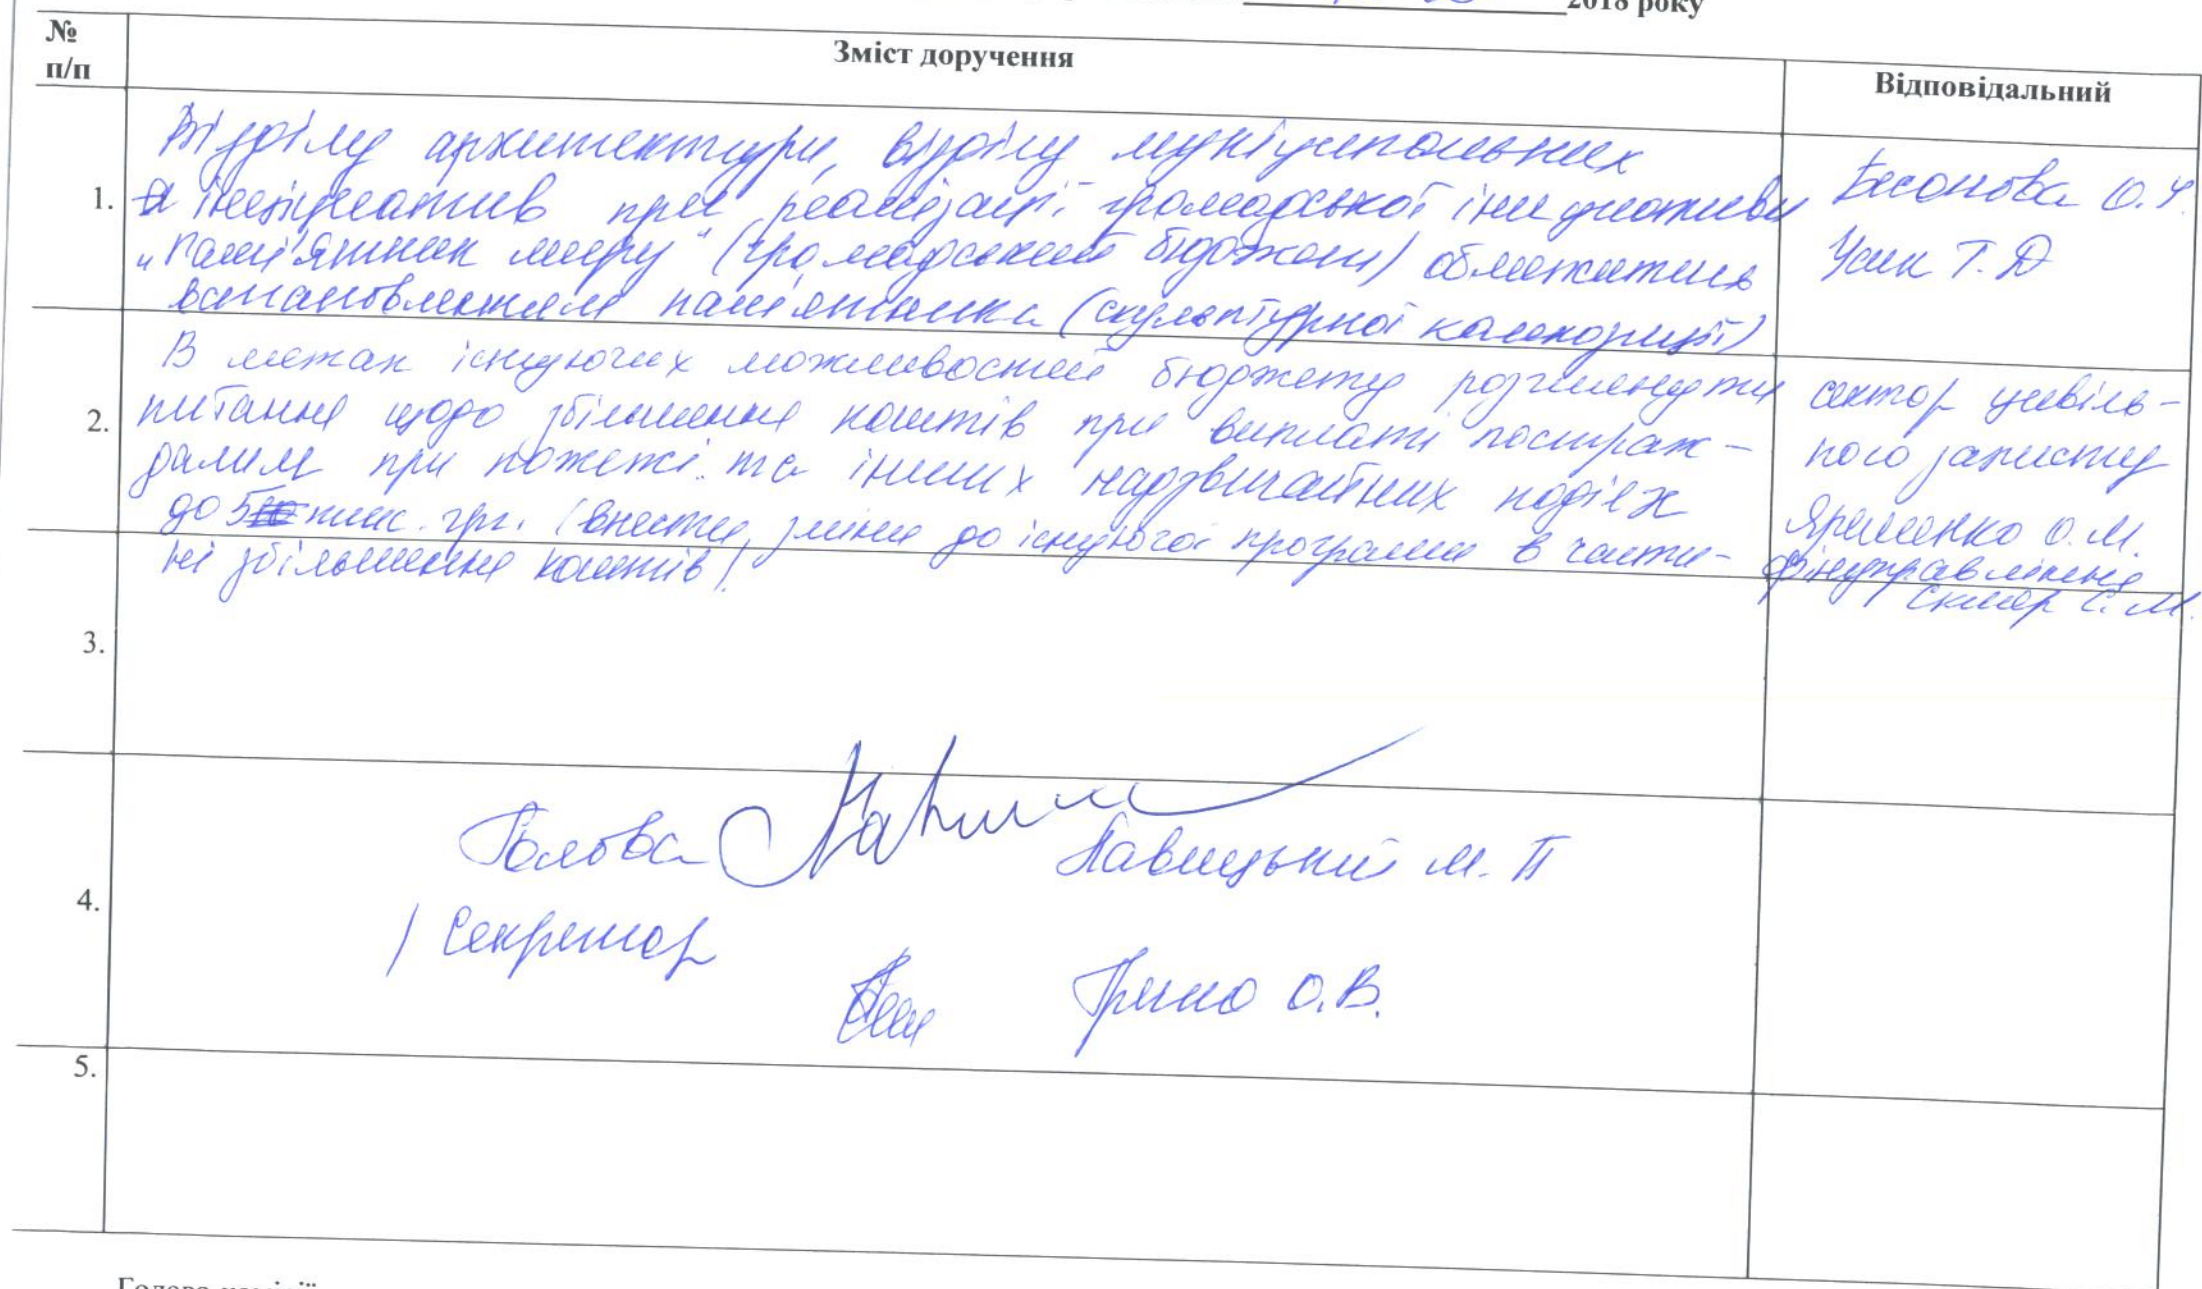 2018 року
№ п/п
Зміст доручення
Відповідальний
1.
Відділу архитектури, відділу муніципальних
ініціатив при реалізації громадської ініціативи
"Пам'ятник миру" (громадський бюджет) обмежитись
встановленням пам'ятника (скульптурної композиції)
Усик Т. Д
2.
В межах існуючих можливостей бюджету розглянути
питання щодо збільшення коштів при виплаті постраж-
далим при пожежі та інших надзвичайних подіях
до 5 тис. грн. (внести зміни до існуючої програми в части-
ні збільшення коштів)
сектор цивіль-
ного захисту
Яременко О.М.
Фінуправління
С. М.
3.
4.
Голова Навицький М. П
Секретар
О.В.
5.
Голова комісії